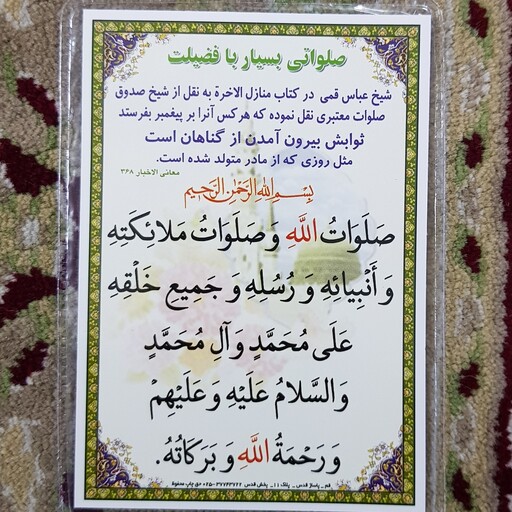 صلواتی بسیار با فضیلت
شیخ عباس قمی در کتاب منازل الاخرة به نقل از شیخ صدوق
صلوات معتبری نقل نموده که هرکس آنرا بر پیغمبر بفرستد
ثوابش بیرون آمدن از گناهان است
مثل روزی که از مادر متولد شده است.
معانی الاخبار ۳۶۸
بِسْمِ اللهِ الرَّحْمٰنِ الرَّحِیمِ
صَلَوَاتُ اللَّهِ وَ صَلَوَاتُ مَلائِكَتِهِ
وَ أَنْبِيائِهِ وَ رُسُلِهِ وَ جَمِيعِ خَلْقِهِ
عَلَى مُحَمَّدٍ وَ آلِ مُحَمَّدٍ
وَ السَّلامُ عَلَيْهِ وَ عَلَيْهِمْ
وَ رَحْمَةُ اللَّهِ وَ بَرَكَاتُهُ.
قم _ پاساژ قدس _ پلاک ۱۱_ پخش قدس ۳۷۷۴۳۷۲۲-۰۲۵ حق چاپ محفوظ